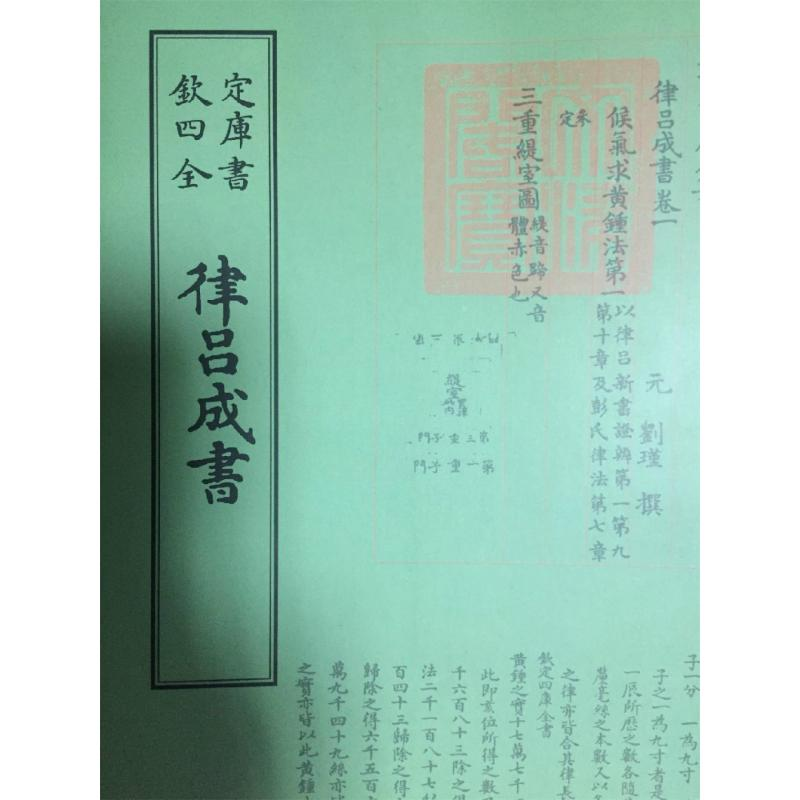 欽定
四庫
全書
律呂成書
律呂成書卷一
元 劉瑾 撰
候氣求黃鍾法第一以律呂新書證辨第一第九
第十章及彭氏律法第七章
參定
三重緹室圖緹音蹄又音
體赤色也
緹室
第三重子門
第一重子門
子一分 一為九寸
子之一為九寸者是
一辰所歷之數各隨
釐毫絲之本數又以
之律亦皆合其律長
欽定四庫全書
黃鍾之實十七萬七千
此即亥位所得之數
千六百八十三除之得
法二千一百八十七
百四十三歸除之得
歸除之得六千五百
萬九千四十九絲亦
之實亦皆以此黃鍾